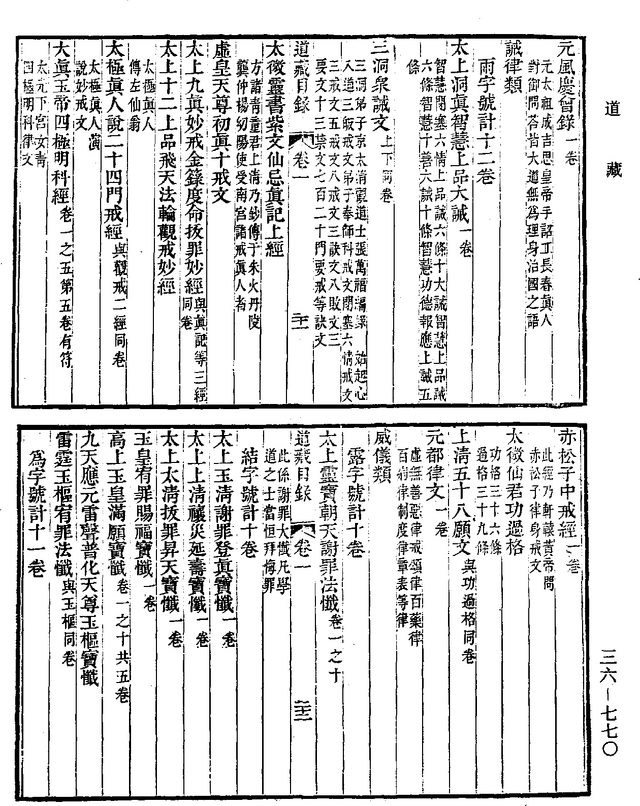 道藏
三六—七七〇
元風慶會錄一卷
元太祖成吉思皇帝手詔丘長春眞人
對御問荅皆大道無爲理身治國之語
誡律類
雨字號計十二卷
太上洞眞智慧上品大誡一卷
智慧閉塞六情上品誡六條十大誡智慧上品誡
六條智慧十善六誡十條智慧功德報應上誡五
條
三洞眾誡文上下同卷
三洞弟子京太淸觀道士張萬福編錄 始起心
入道三皈戒文弟子奉師科戒文閉塞六情戒文
三戒文五戒文八戒文三訣文八敗文三
要文十三禁文七百二十門要戒等訣文
道藏目錄 卷一 二十一
太微靈書紫文仙忌眞記上經
方諸靑童君上淸乃鈔傳于朱火丹陵
龔仲陽幼陽使受南宮諸戒眞人者
虛皇天尊初眞十戒文
太上九眞妙戒金籙度命拔罪妙經與眞記等三經同卷
太上十二上品飛天法輪觀戒妙經
太極眞人
傳左仙翁
太極眞人說二十四門戒經與觀戒二經同卷
太極眞人演
說妙戒文
大眞玉帝四極明科經卷一之五第五卷有符
太元下宮女靑
四極明科律文
赤松子中戒經一卷
此經乃軒轅黃帝問
赤松子律身戒文
太微仙君功過格
功格三十六條
過格三十九條
上淸五十八願文與功過格同卷
元都律文一卷
虛無善惡律戒頌律百藥律
百病律制度律章表等律
威儀類
露字號計十卷
太上靈寶朝天謝罪法懺卷一之十
道藏目錄 卷一 二十二
此係謝罪大懺凡學
道之士當恒拜悔罪
結字號計十卷
太上玉淸謝罪登眞寶懺一卷
太上上淸禳災延壽寶懺一卷
太上太淸拔罪昇天寶懺一卷
玉皇宥罪賜福寶懺一卷
高上玉皇滿願寶懺卷一之十共五卷
九天應元雷聲普化天尊玉樞寶懺
雷霆玉樞宥罪法懺與玉樞同卷
爲字號計十一卷